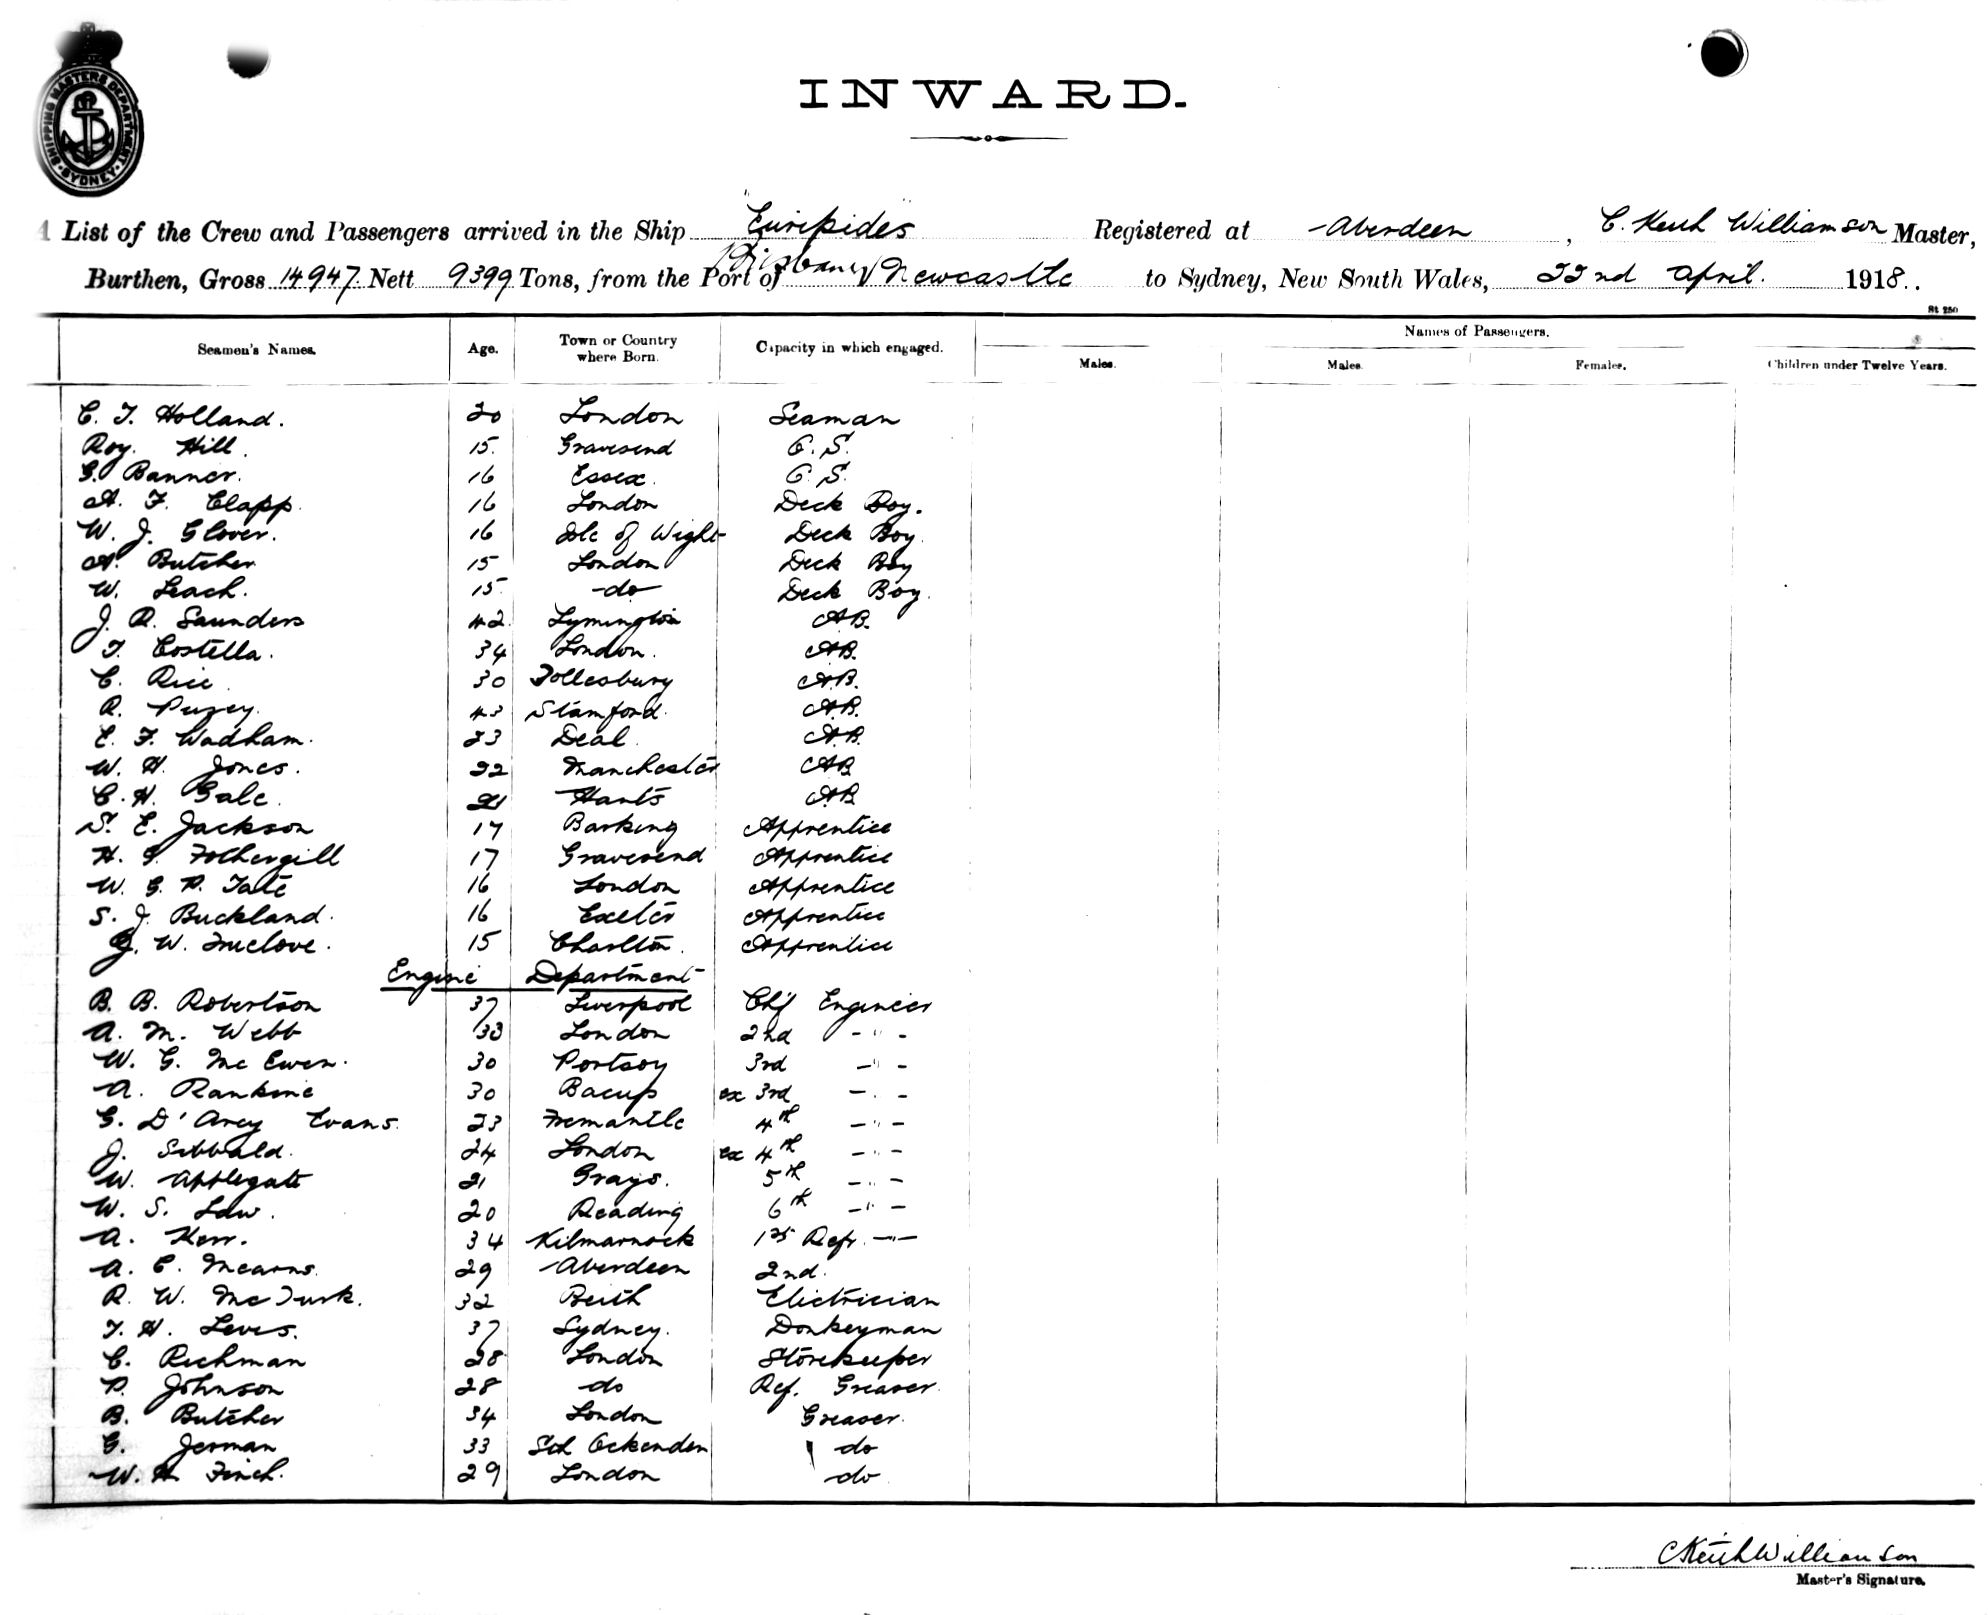 SHIPPING MASTERS DEPARTMENT
SYDNEY
INWARD.
List of the Crew and Passengers arrived in the Ship Euripides Registered at Aberdeen, C. Keith Williamson Master,
Burthen, Gross 14947 Nett 9399 Tons, from the Port of Brisbane Newcastle to Sydney, New South Wales, 22nd April. 1918.
St 250
Seamen's Names. Age. Town or Country where Born. Capacity in which engaged. Names of Passengers.
Males. Males. Females. Children under Twelve Years.
C. T. Holland. 20 London Seaman
Roy. Hill. 15. Gravesend O.S.
G. Banner. 16 Essex. O.S.
A. F. Clapp. 16 London Deck Boy.
W. J. Glover. 16 Isle of Wight Deck Boy.
A. Butcher 15 London Deck Boy
W. Leach. 15. do Deck Boy.
J. R. Saunders 42. Lymington AB.
T. Costella. 34 London. AB.
C. Rice. 30 Tollesbury A.B.
R. Puzey. 43 Stamford. A.B.
E. F. Wadham. 23 Deal. A.B.
W. H. Jones. 22 Manchester AB
C. H. Gale. 21 Hants AB
S. E. Jackson 17 Barking Apprentice
H. G. Fothergill 17 Gravesend Apprentice
W. G. P. Tate 16 London Apprentice
S. J. Buckland. 16 Exeter Apprentice
J. W. Truelove. 15 Charlton. Apprentice
Engine Department
B. B. Robertson 37 Liverpool Chf Engineer
A. M. Webb 33 London 2nd - " -
W. G. Mc Ewen. 30 Portsoy 3rd - " -
A. Rankine 30 Bacup ex 3rd - " -
G. D'Arcy Evans. 23 Fremantle 4th - " -
J. Sibbald. 24 London ex 4th - " -
W. Applegate 21 Grays. 5th - " -
W. S. Law. 20 Reading 6th - " -
A. Kerr. 34 Kilmarnock 1st Refr. - " -
A. C. Mearns. 29 Aberdeen 2nd.
R. W. McTurk. 32 Beith Electrician
T. H. Leves. 37 Sydney. Donkeyman
C. Richman 28 London Storekeeper
P. Johnson 28 do Ref. Greaser.
B. Butcher 34 London Greaser.
G. Jerman 33 Sth Ockenden do
W. H. Finch. 29 London do
C Keith Williamson
Master's Signature.